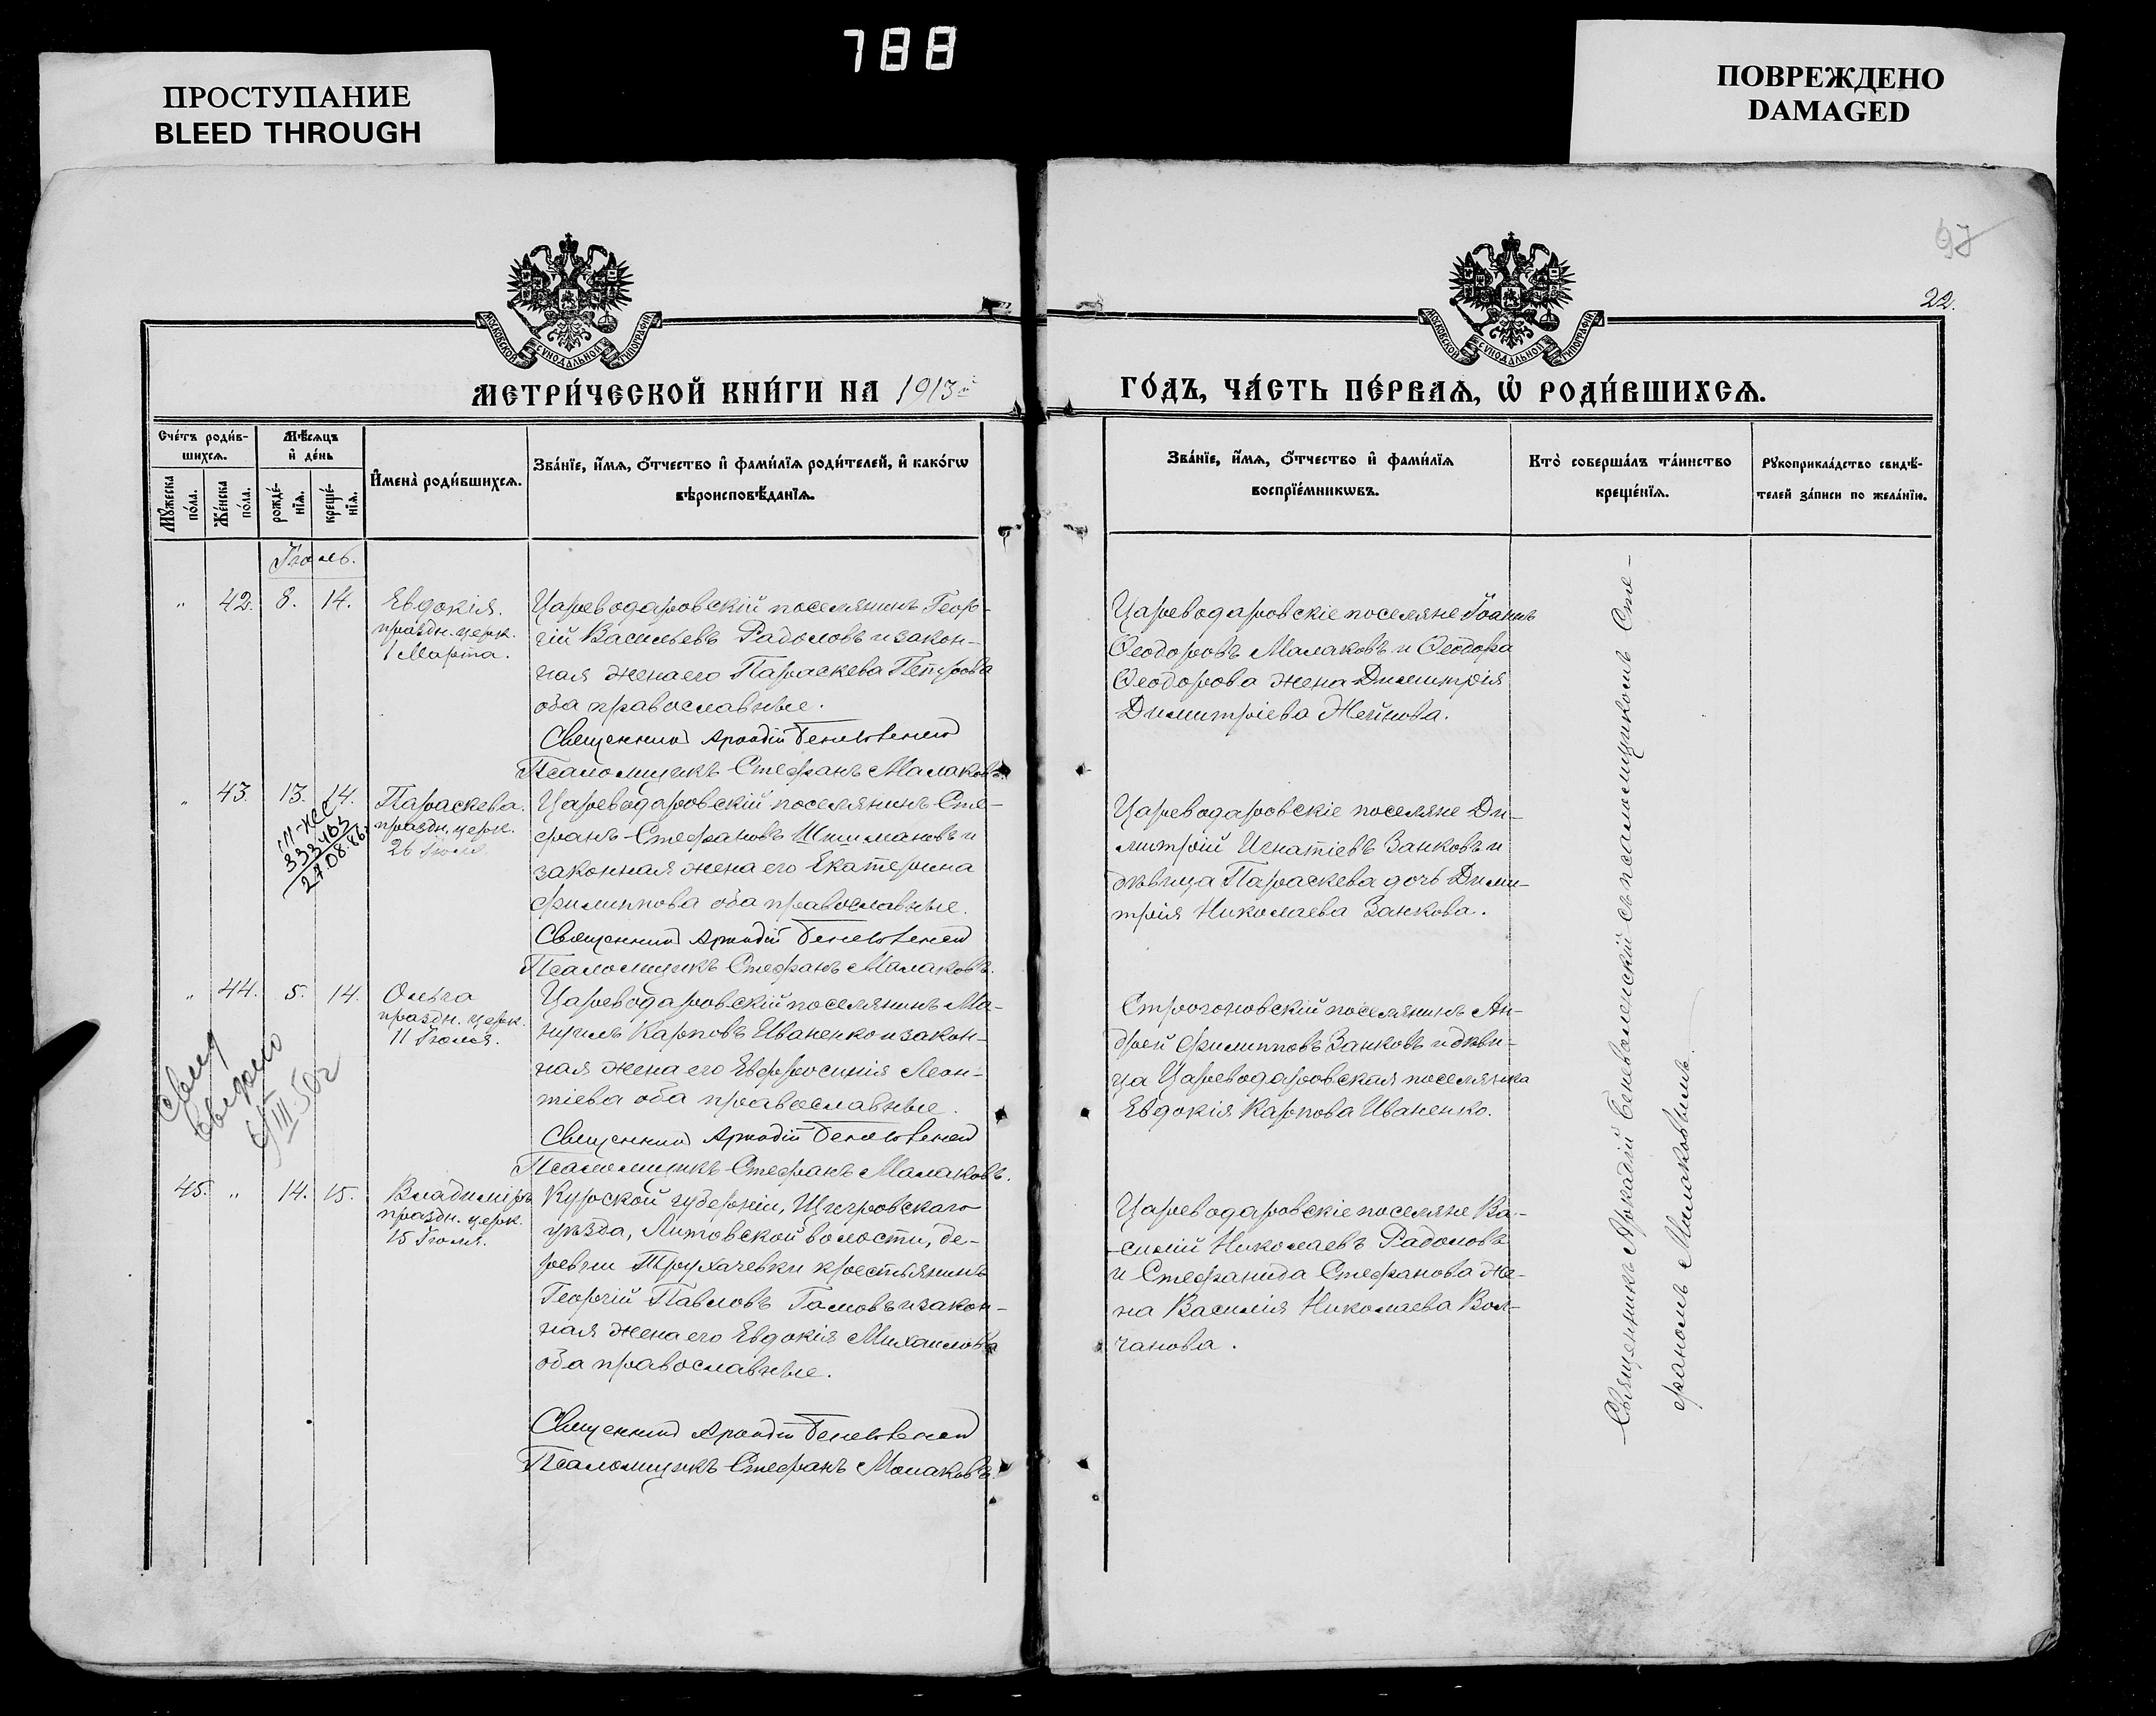 788
ПРОСТУПАНИЕ
BLEED THROUGH
ПОВРЕЖДЕНО
DAMAGED
22.
МОСКОВСКОЙ СѴНОДАЛЬНОЙ ТИПОГРАФІИ
МОСКОВСКОЙ СѴНОДАЛЬНОЙ ТИПОГРАФІИ
МЕТРИ́ЧЕСКОЙ КНИ́ГИ НА 1913й
ГО́ДЪ, ЧА́СТЬ ПЕ́РВАѦ, Ѡ҆ РОДИ́ВШИХСѦ.
Сче́тъ роди́в-
шихсѧ.
Мꙋжеска по́ла.
Же́нска по́ла.
Мѣ́сѧцъ
и҆ де́нь
рожде́-
нїѧ.
креще́-
нїѧ.
И҆мена̀ роди́вшихсѧ.
Зва́нїе, и҆́мѧ, ѻ҆́тчество и҆ фами́лїѧ роди́телей, и҆ како́гѡ
вѣроисповѣ́данїѧ.
Зва́нїе, и҆́мѧ, ѻ҆́тчество и҆ фами́лїѧ
воспрїе́мникѡвъ.
Кто̀ соверша́лъ та́инство
креще́нїѧ.
Рꙋкоприкла́дство свидѣ́-
телей за́писи по жела́нїю.
Іюль.
" 42. 8. 14. Евдокія.
праздн. церк.
1 Марта.
Цареводаровскій поселянинъ Геор-
гій Васильевъ Радоловъ и закон-
ная жена его Параскева Петрова
оба православные.
Священникъ Аркадій Беневоленскій
Псаломщикъ Стефанъ Малаковъ.
Цареводаровскіе поселяне Іоаннъ
Ѳеодоровъ Малаковъ и Ѳеодора
Ѳеодорова жена Димитрія
Димитріева Жейнова.
" 43. 13. 14. Параскева.
праздн. церк.
26 Іюля
333403
27.08.86.
Цареводаровскій поселянинъ Сте-
фанъ Стефановъ Шишмановъ и
законная жена его Екатерина
Филиппова оба православные.
Священникъ Аркадій Беневоленскій
Псаломщикъ Стефанъ Малаковъ.
Цареводаровскіе поселяне Ди-
митрій Игнатіевъ Занковъ и
дѣвица Параскева дочь Дими-
трія Николаева Занкова.
" 44. 5. 14. Ольга
праздн. церк.
11 Іюля.
Цареводаровскій поселянинъ Ма-
нуилъ Карповъ Иваненко и закон-
ная жена его Евфросинія Леон-
тіева оба православные.
Священникъ Аркадій Беневоленскій
Псаломщикъ Стефанъ Малаковъ.
Строгоновскій поселянинъ Ан-
дрей Филипповъ Занковъ и дѣви-
ца Цареводаровская поселянка
Евдокія Карпова Иваненко.
Свид
выдано
III 50г
45. " 14. 15. Владиміръ
праздн. церк.
15 Іюля.
Курской губерніи, Щигровскаго
уѣзда, Липовской волости, де-
ревни Трухачевки крестьянинъ
Георгій Павловъ Гамовъ и закон-
ная жена его Евдокія Михаилова
оба православные.
Священникъ Аркадій Беневоленскій
Псаломщикъ Стефанъ Малаковъ.
Цареводаровскіе поселяне Ва-
силій Николаевъ Радоловъ
и Стефанида Стефанова же-
на Василія Николаева Вол-
чанова.
Священникъ Аркадій Беневоленскій съ псаломщикомъ Сте-
фаномъ Малаковымъ.